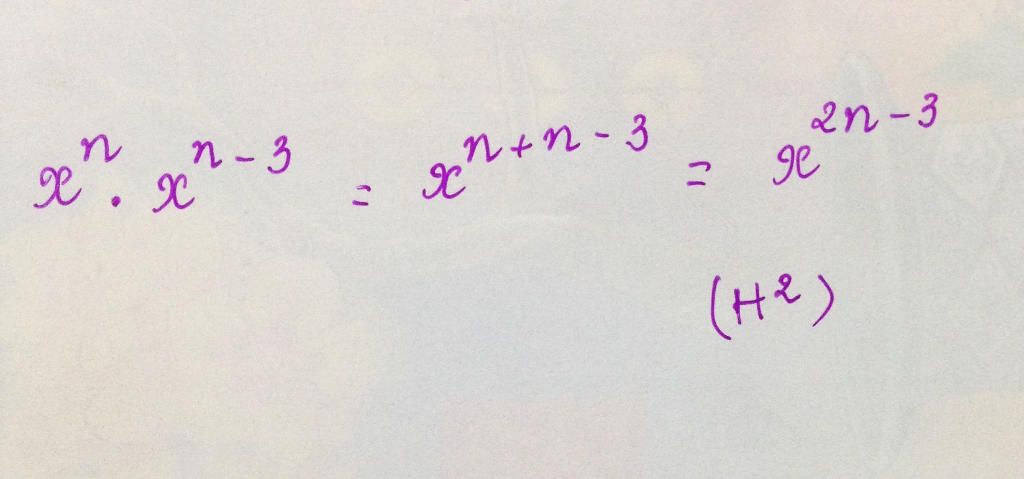 xⁿ . xⁿ⁻³ = xⁿ⁺ⁿ⁻³ = x²ⁿ⁻³
(H²)